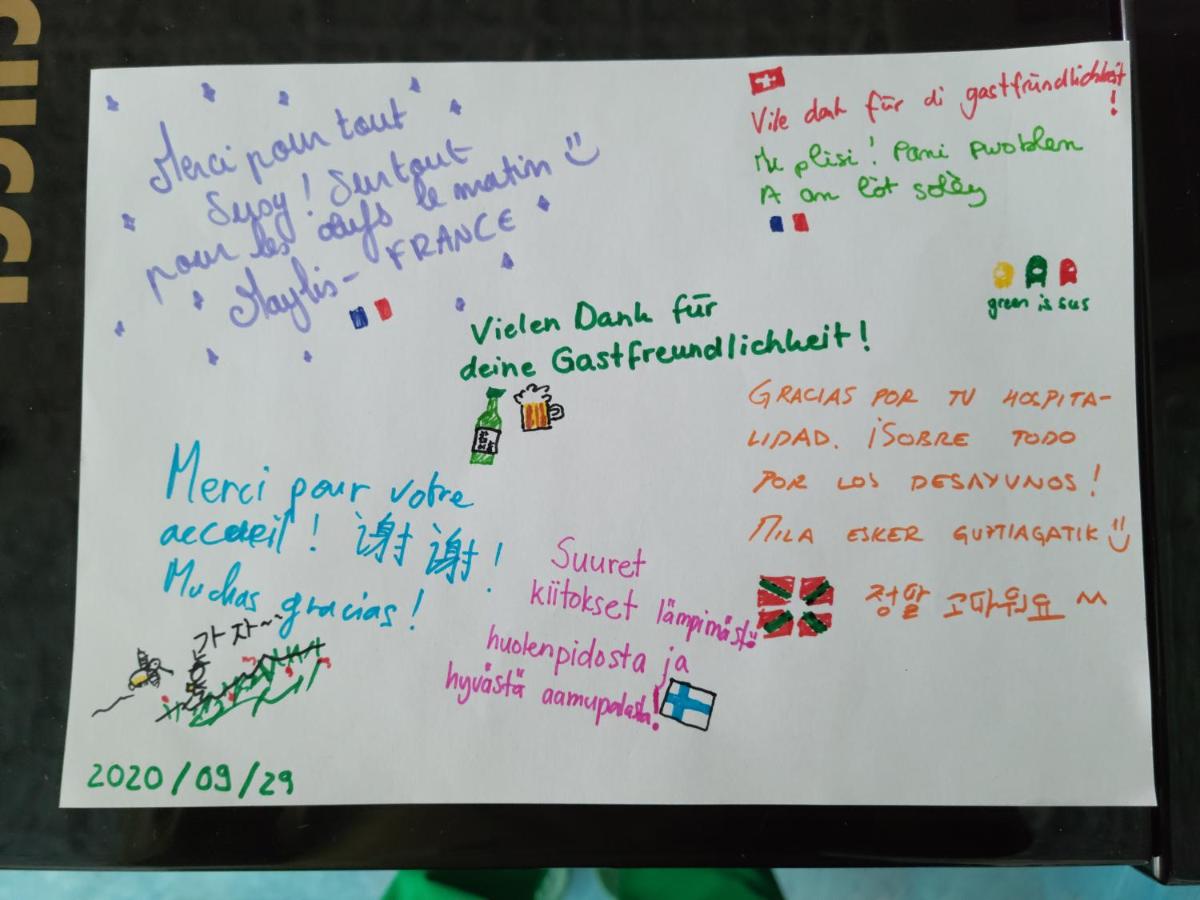 Merci pour tout
Susy! Surtout
pour les œufs le matin
Maylis - FRANCE
Vile dank für di gastfründlichkeit
!
Mè plisi! Pani pwoblem
A an lòt solèy
green is sus
Vielen Dank für
deine Gastfreundlichkeit!
GRACIAS POR TU HOSPITA-
LIDAD. ¡SOBRE TODO
POR LOS DESAYUNOS!
MILA ESKER GUZTIAGATIK
정말 고마워요 ^^
Merci pour votre
accueil! 谢谢!
Muchas gracias!
가자~
Suuret
kiitokset lämpimästä
huolenpidosta ja
hyvästä aamupalasta!
2020/09/29